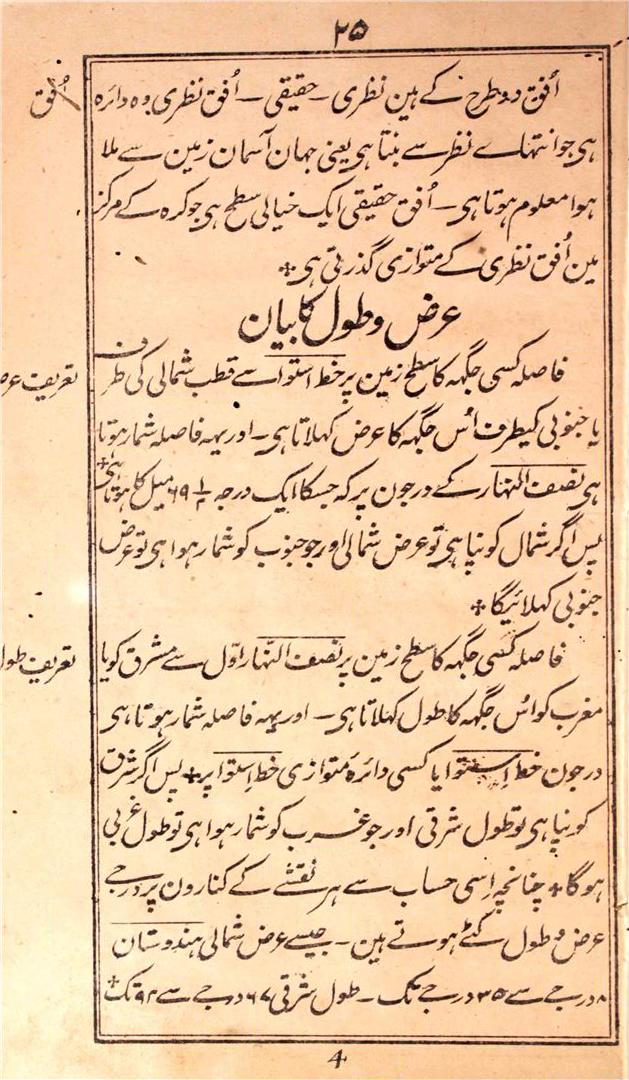 ۲۵
اُفق
اُفق دو طرح کے ہین نظری ـ حقیقی ـ اُفق نظری وہ دائرہ
ہی جو انتہاے نظر سے بنتا ہی یعنی جہان آسمان زمین سے ملا
ہوا معلوم ہوتا ہی ـ اُفق حقیقی ایک خیالی سطح ہی جو کرہ کے مرکز
مین اُفق نظری کے متوازی گذرتی ہی +
عرض و طول کا بیان
تعریف عرض
فاصلہ کسی جگہہ کا سطح زمین پر خط استوا سے قطب شمالی کی طرف
یا جنوبی کیطرف اُس جگہہ کا عرض کہلاتا ہی ـ اور یہہ فاصلہ شمار ہوتا
ہی نصف النہار کے درجون پر کہ جسکا ایک درجہ ۶۹ ۱/۲ میل کا ہوتا ہی +
پس اگر شمال کو نپا ہی تو عرض شمالی اور جو جنوب کو شمار ہوا ہی تو عرض
جنوبی کہلائیگا +
تعریف طول
فاصلہ کسی جگہہ کا سطح زمین پر نصف النہار اوّل سے مشرق کو یا
مغرب کو اُس جگہہ کا طول کہلاتا ہی ـ اور یہہ فاصلہ شمار ہوتا ہی
درجون خط اِستوا یا کسی دائرہ متوازی خط اِستوا پر + پس اگر شرق
کو نپا ہی تو طول شرقی اور جو غرب کو شمار ہوا ہی تو طول غربی
ہوگا + چنانچہ اِسی حساب سے ہر نقشے کے کنارون پر درجے
عرض و طول کے لکھے ہوتے ہین ـ جیسے عرض شمالی ہندوستان
۸ درجے سے ۳۵ درجے تک ـ طول شرقی ۶۷ درجے سے ۹۲ تک +
4